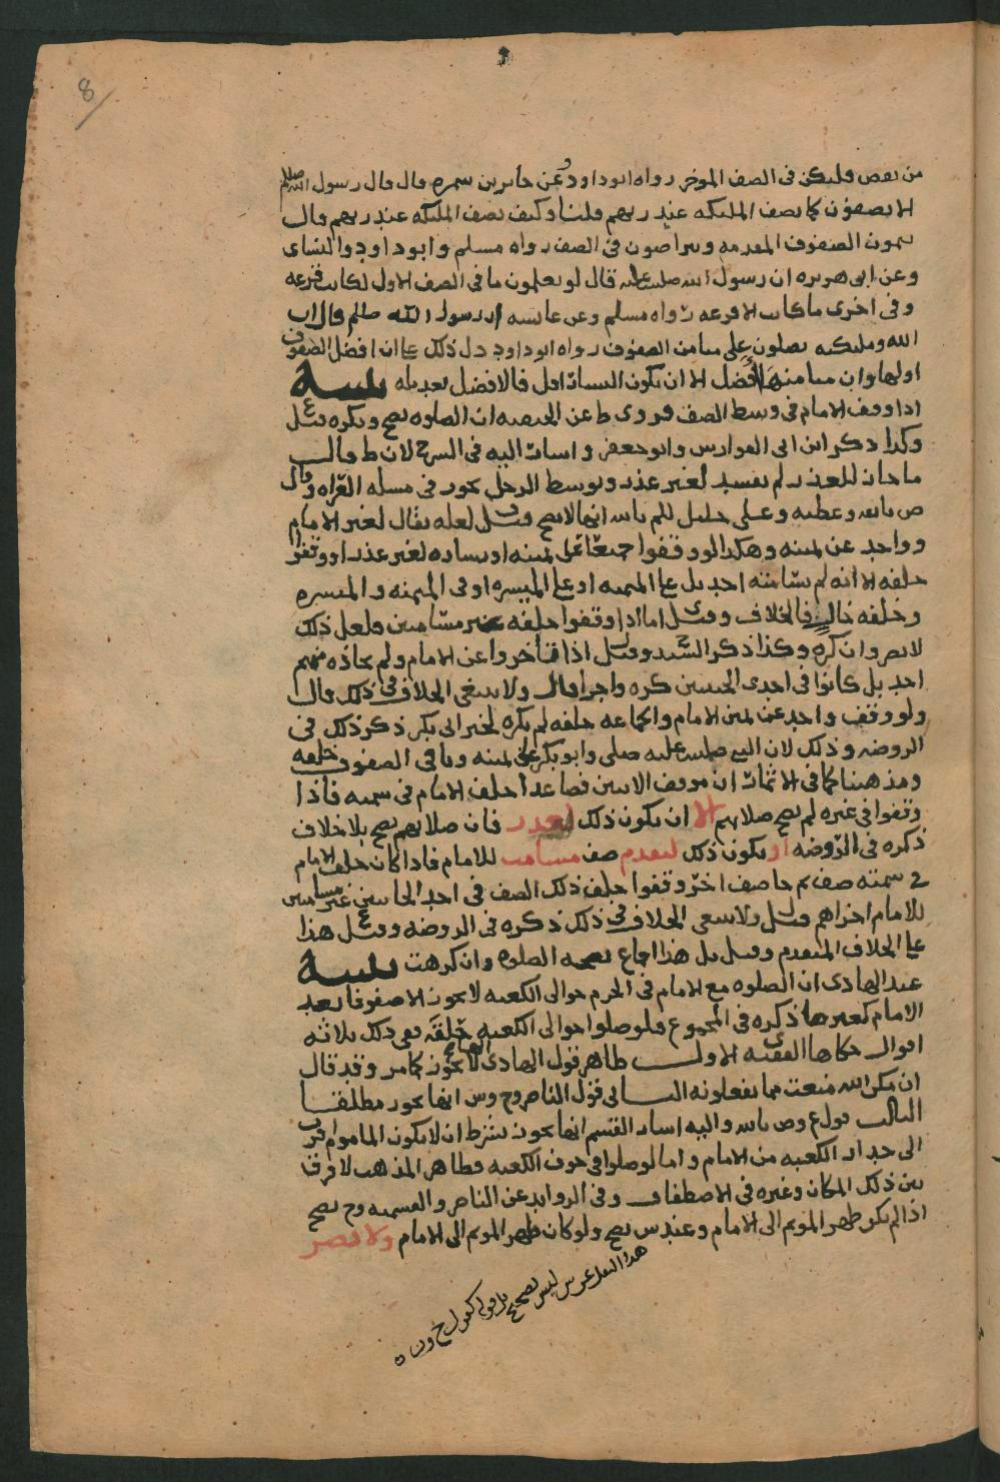 8
من نقص فليكن في الصف الموخر رواه ابو داود وعن جابر بن سمره قال قال رسول الله صللم
الا تصفون كما تصف المليكه عند ربهم قلنا وكيف تصف المليكه عند ربهم قال
يتمون الصفوف المقدمه ويتراصون في الصف رواه مسلم وابو داود والنساي
وعن ابي هريره ان رسول الله صلى عليه قال لو تعلمون ما في الصف الاول لكانت قرعه
وفي اخرى ما كانت الا قرعه رواه مسلم وعن عايشه ان رسول الله صللم قال ان
الله ومليكته يصلون على ميامن الصفوف رواه ابو داود دل ذلك على ان افضل الصفوف
اولها وان ميامنها افضل الا ان يكون اليسار اقل فالافضل تعديله تنبيه
اذا وقف الامام في وسط الصف فروى ط عن الحنفيه ان الصلوه تصح ويكره وقيل ع
وكذا ذكر ابن ابي الفوارس وابو جعفر واشار اليه في الشرح لان ط قال
ما جاز للعذر لم يفسد لغير عذر وتوسط الرجل يجوز في مسله العراه وقال
ص بالله وعطيه وعلي خليل للم بالله انها لا تصح وقيل ل لعله يقال لغير الامام
وواحد عن يمينه وهكذا لو وقفوا جميعا عن يمينه او يساره لغير عذر او وقفوا
خلفه الا انه لم يسامته احد بل على الميمنه او على الميسره او في الميمنه والميسره
وخلفه خال فالخلاف وقيل ي اما اذا وقفوا خلفه غير مسامتين فلعل ذلك
لا يضر وان كره وكذا ذكر السيد وقيل ح اذا تاخروا عن الامام ولم يحاذه منهم
احد بل كانوا في احدى الجنبين كره واجزا قال ولا ينبغي الخلاف في ذلك قال
ولو وقف واحد عن يمين الامام والجماعه خلفه لم يكره لخبر ابي بكر ذكر ذلك في
الروضه وذلك لان النبي صلى عليه صلى وابو بكر على يمينه وباقي الصفوف خلفه
ومذهبنا كما في الاثمار ان موقف الاثنين فصاعدا خلف الامام في سمته فاذا
وقفوا في غيره لم تصح صلاتهم الا ان يكون ذلك لعذر فان صلاتهم تصح بلا خلاف
ذكره في الروضه او يكون ذلك لتقدم صف مسامت للامام فاذا كان خلف الامام
في سمته صف ثم جا صف اخر وقفوا خلف ذلك الصف في احد الجانبين غير مسامتين
للامام اجزاهم قيل ل ولا ينبغي الخلاف في ذلك ذكره في الروضه وقيل ع هذا
على الخلاف المتقدم وقيل بل هذا اجماع بصحه الصلوه وان كرهت تنبيه
عند الهادي ان الصلوه مع الامام في الحرم حوالى الكعبه لا تجوز الا صفوفا بعد
الامام كغيرها ذكره في المجموع فلو صلوا حوالى الكعبه حلقه ففي ذلك ثلاثه
اقوال حكاها الفقيه ي الاول ظاهر قول الهادي انها لا تجوز كما مر وقد قال
ان مكن الله منعت مما يفعلونه الثاني قول الناصر وح وش انها تجوز مطلقا
الثالث قول ع وص بالله واليه اشار القسم انها تجوز بشرط ان لا يكون الماموم اقرب
الى جدار الكعبه من الامام واما لو صلوا في جوف الكعبه فظاهر المذهب لا فرق
بين ذلك المكان وغيره في الاصطفاف وفي الزوايد عن الناصر والقسميه وح تصح
اذا لم يكن ظهر الموتم الى الامام وعند ش تصح ولو كان ظهر الموتم الى الامام ولا يضر
هذا النقل عن ش ليس بصحيح بل قوله كقول ح ون ه